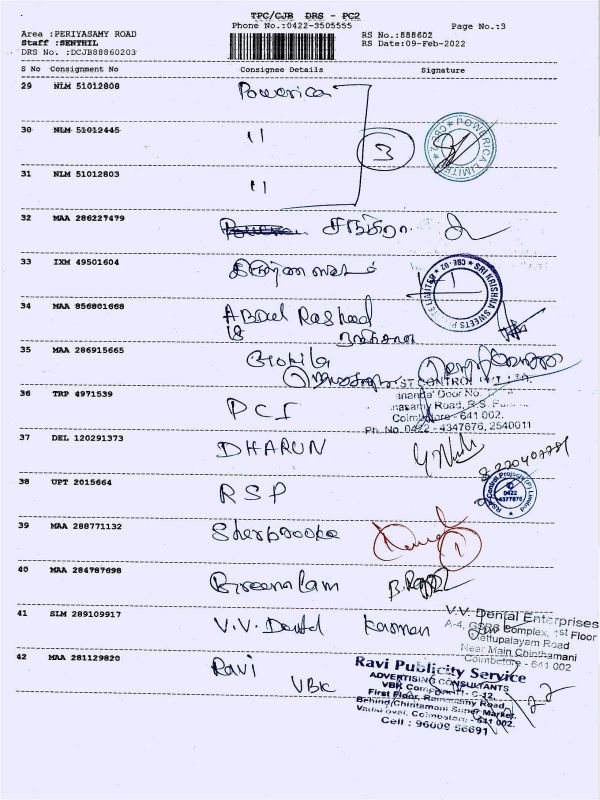 TPC/CJB DRS - PC2
Phone No.:0422-3505555
Page No.:3
Area :PERIYASAMY ROAD
Staff :SENTHIL
DRS No. :DCJB88860203
RS No.:888602
RS Date:09-Feb-2022
S No Consignment No Consignee Details Signature
29 NLM 51012808 Powerica
30 NLM 51012445 "
31 NLM 51012803 "
3
POWERICA LIMITED
32 MAA 286227479
33 IXM 49501604
SRI KRISHNA SWEETS PRIVATE LIMITED CBE-02
34 MAA 856801668 Abdul Rasheed
18
35 MAA 286915665 Gokila
36 TRP 4971539 PCI
EST CONTROL
Door No.
Road, R.S.
Coimbatore - 641 002.
Ph. No. 0422 - 4347676, 2540011
37 DEL 120291373 DHARUN
38 UPT 2015664 RSP
0422
4377876
39 MAA 288771132 Sherbrooke
1
40 MAA 284787698
41 SLM 289109917 V.V. Dental
V.V. Dental Enterprises
A-4, Complex, 1st Floor
Mettupalayam Road
Near Main Chinthamani
Coimbatore - 641 002
42 MAA 281129820 Ravi
VBK
Ravi Publicity Service
ADVERTISING CONSULTANTS
VBK Complex, C-12,
First Floor, Ramasamy Road,
Behind Chintamani Super Market,
Coimbatore - 641 002.
Cell : 96009 56691